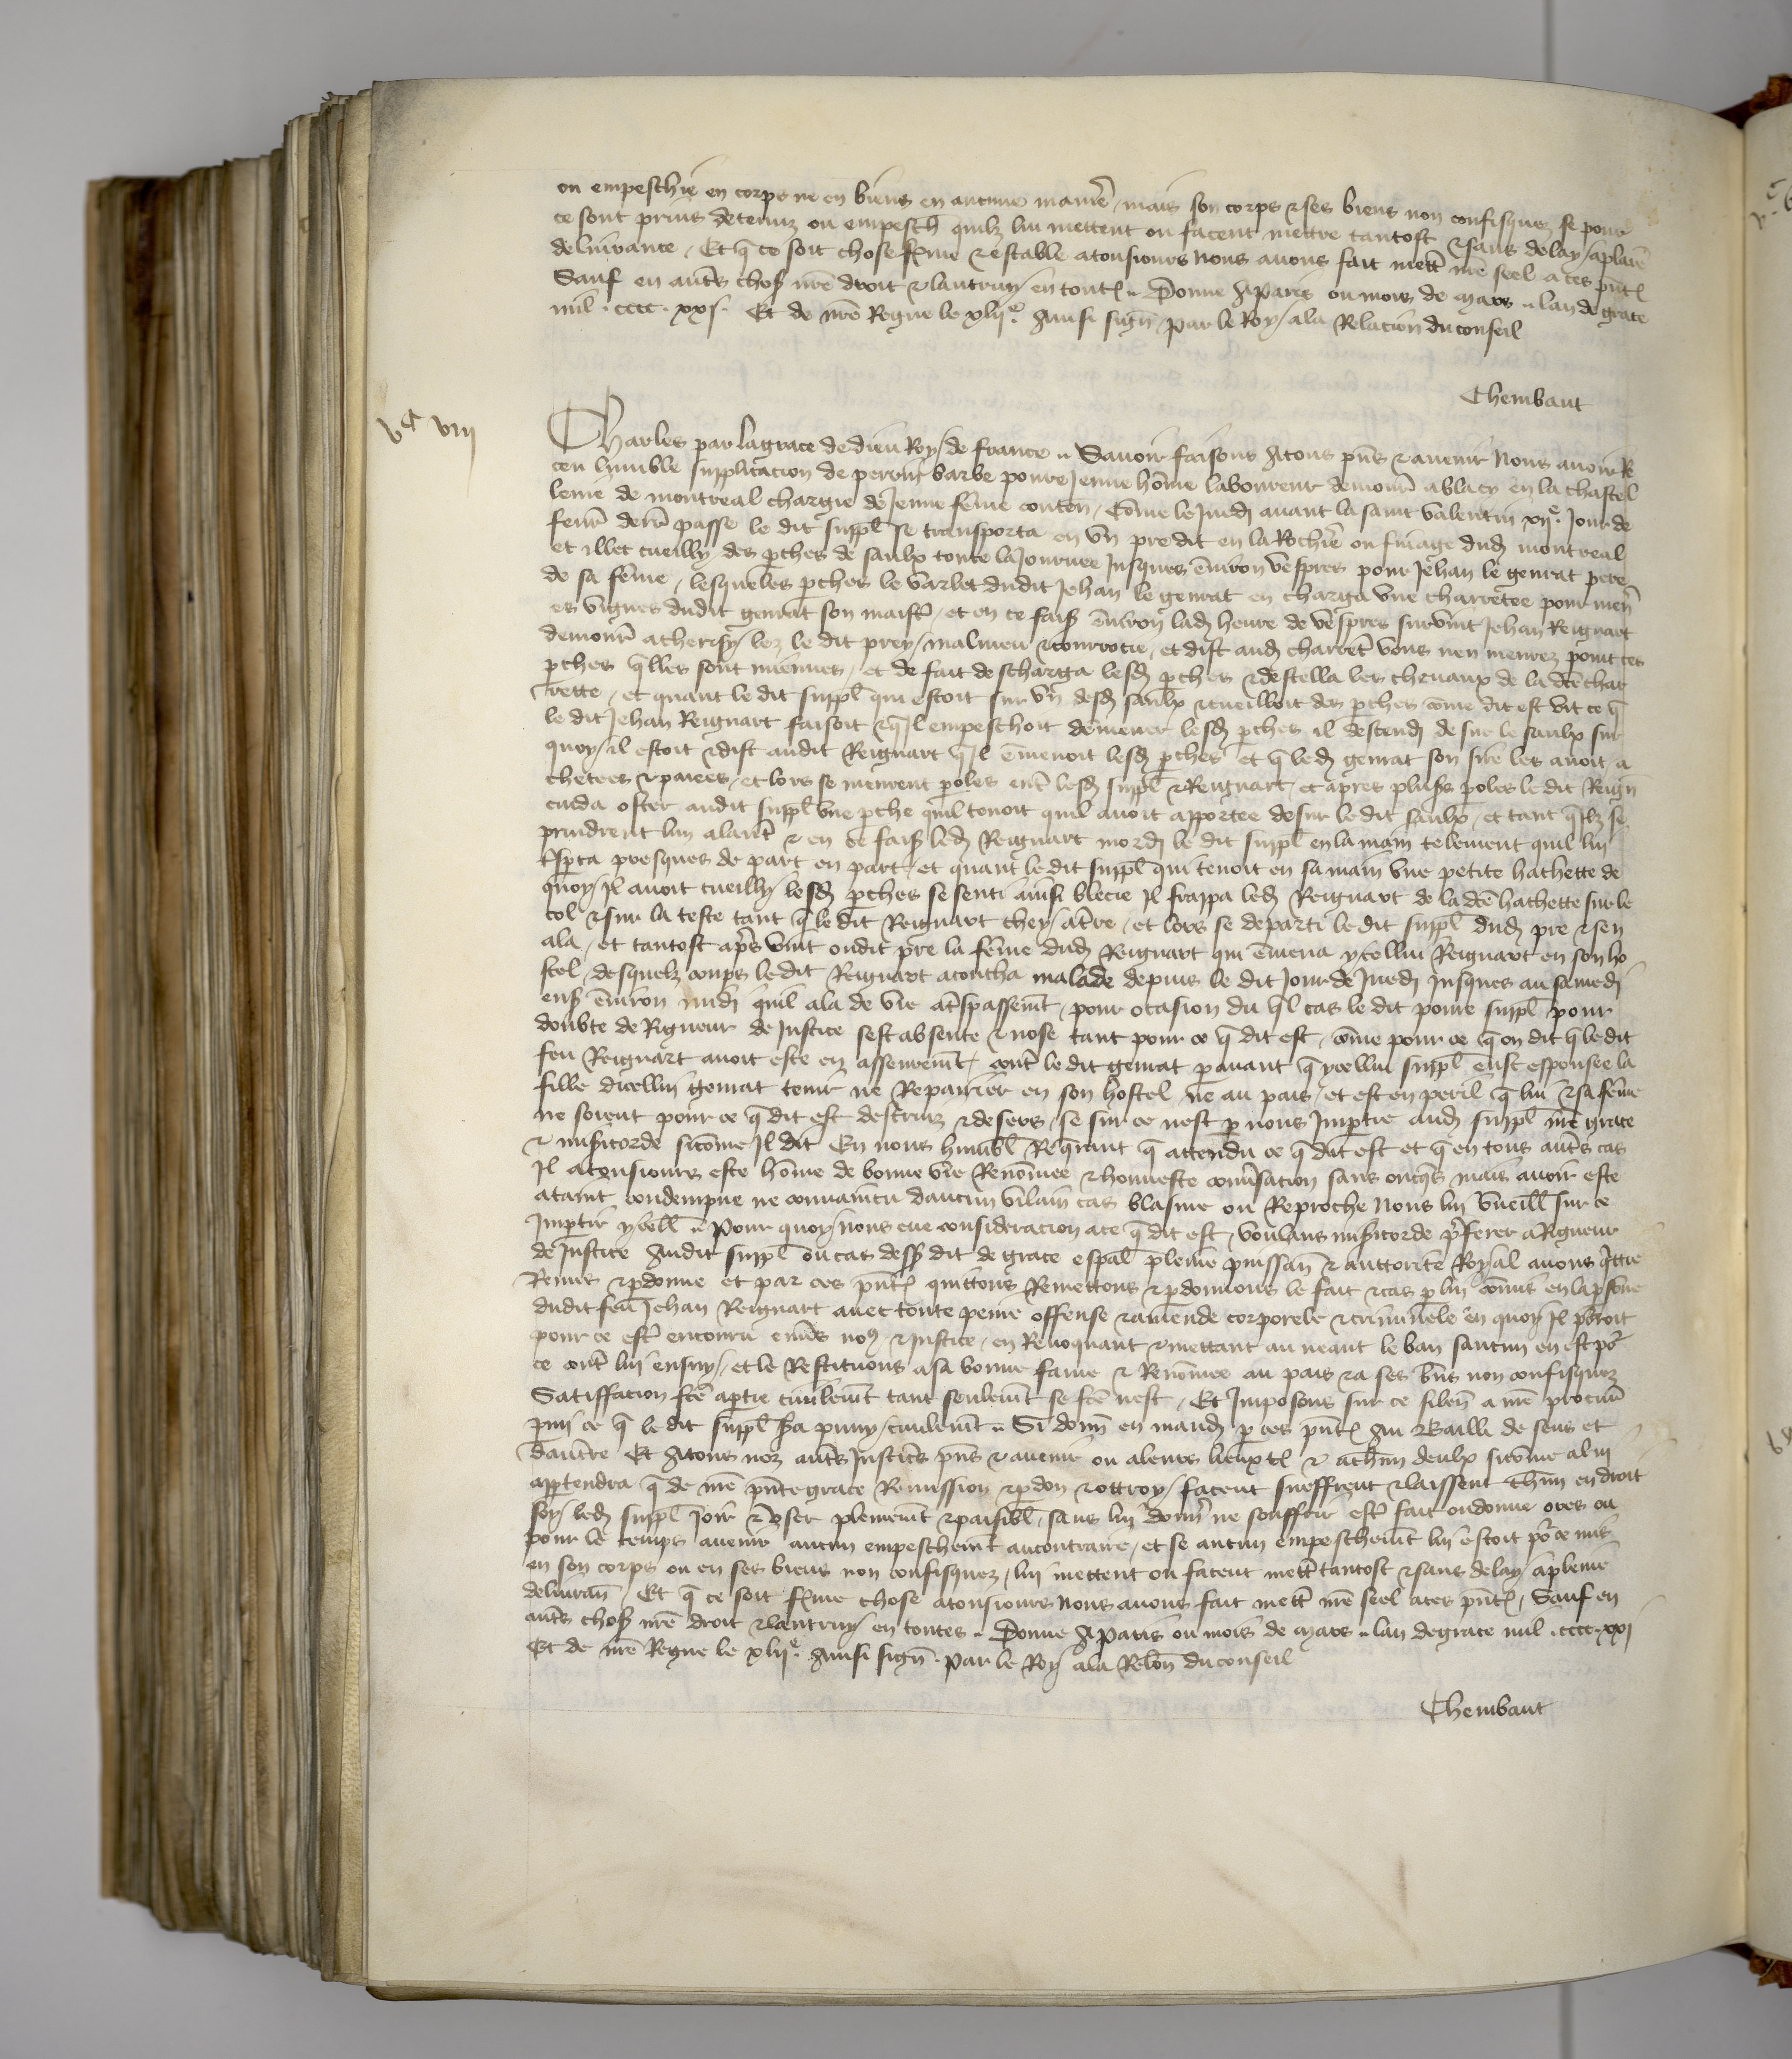 ou empeschie en corps ne en biens en aucune manie᷑ mais son corps & ses biens non confisquez se pour
ce sont prins detenuz ou empesch̅ quilz lui mettent ou facent mettre tantost & sans delay aplaine̅
deliurance Et q̅ ce soit chose ferme & estable atousiours Nous auons fait mett᷑ nr̅e seel a ces pn̅tes
Sauf en aut᷑s choses nr̅e droit & lautruy en toutes Donne A Paris ou mois de Mars lan de grace
mil . cccc . xxj . Et de nr̅e Regne le xlij e. Ainsi sign̅ Par le Roy a la Relacion du conseil
Chembaut
vc viij
Charles par la grace de dieu Roy de france Sauoir faisons A tous pn̅s & auenir Nous auoir Re
ceu lumble supplicacion de perrin barbe poure Jeune ho̅me laboureur demour̅ a blacy en la chastel
lenie de montreal chargie de Jeune fe̅me conten̅ Co̅me le Jueudi auant la saint valentin xij e. Jour de
feur̅ derr̅ passe le dit suppl̅ se transporta en vn pre dit en la Rochie᷑ ou finage dud montreal
et illec cueilly des p̱ches de saulx toute la Journee Jusques enuiron vespres pour Jehan le gentat pere
de sa fe̅me lesqueles p̱ches le varlet dudit Jehan le gentat en charga vne charretee pour men᷑
es vignes dudit gentat son maist᷑ et en ce fais̅ enuiron lad heure de vespres suruint Jehan Reignart
demour̅ a lez le dit prey malmeu & courrocie et dist aud charret᷑ vous nen menrez point ces
p̱ches q̅lles sont miennes et de fait descharga lesd p̱ches & destella les cheuaux de la dc̅e char
rette et quant le dit suppl̅ qui estoit sur vn desd saulx & cueilloit des p̱ches co̅me dit est vit ce q̅
le dit Jehan Reignart faisoit & q̅l empeschoit demener lesd p̱ches il descendi de sur le saulx sur
quoy il estoit & dist audit Reignart q̅l e̅menoit lesd p̱ches et q̅ led gentat son sire les auoit a
chetees & paiees et lors se meurent p̱oles ent᷑ lesd suppl̅ & Reignart et apres plus̅s p̱oles le dit Reign̅
cuida oster audit suppl̅ vne p̱che quil tenoit quil auoit apportee desur le dit saulx et tant q̅lz se
prindrent lun alaut᷑ & en ce fais̅ led Reignart mordi le dit suppl̅ en la main telement quil lui
p̱ca presques de part en part et quant le dit suppl̅ qui tenoit en sa main vne petite hachette de
quoy Il auoit cueilly lesd p̱ches se senti ainsi blecie Il frappa led Reignart de la dc̅e hachette sur le
col & sur la teste tant q̅ le dit Reignart chey at᷑re et lors se departi le dit suppl̅ dud pre & sen
ala et tantost ap̱s vint oudit pre la fe̅me dud Reignart qui e̅mena ycellui Reignart en son ho
stel desquelz coups le dit Reignart acoucha malade depuis le dit Jour de Jueudi Jusques au samedi
ens̅ enuiron midi quil ala de vie at᷑spassem̅t pour ocasion du q̅l cas le dit poure suppl̅ pour
doubte de Rigueur de Justice sest absente & nose tant pour ce q̅ dit est co̅me pour ce q̅ on dit q̅ le dit
feu Reignart auoit este en asseurem̅t cont᷑ le dit gentat p̱auant q̅ ycellui suppl̅ eust espousee la
fille dicellui gentat tenir ne Repairier en son hostel ne au pais et est en peril q̅ lui & sa fe̅me
ne soient pour ce q̅ dit est destruiz & desers se sur ce nest p̱ nous Imp̱tie aud suppl̅ nr̅e grace
& mis̅icorde sico̅me Il dit En nous humbl̅ Req̅rant q̅ attendu ce q̅ dit est et q̅ en tous aut᷑s cas
Il a tousiours este ho̅me de bonne vie Reno̅mee & honneste conu᷑sacion sans onq̅s mais auoir este
ataint condempne ne conuaincu daucun vilain cas blasme ou Reproche Nous lui vueill̅ sur ce
Imp̱tir ycell̅ Pour quoy nous eue consideracion a ce q̅ dit est voulans mis̅icorde p᷑ferer a Rigueur
de Justice Audit suppl̅ ou cas dess̅ dit de grace esp̅al pleine puissan̅ & auctorite Royal auons q̅tte
Remis & p̱donne et par ces pn̅tes quittons Remettons & p̱donnons le fait & cas p̱ lui co̅mis en la p̱sone
dudit feu Jehan Reignart auec toute peine offense & amende corporele & criminele en quoy Il po̅roit
pour ce est᷑ encouru enu᷑s no9 & Justice en Reuoquant & mettant au neant le ban saucun en est po᷑
ce cont᷑ lui ensuy et le Restituons a sa bonne fame & Reno̅mee au pais & a ses bn̅s non confisquez
Satiffacion fc̅e a p̱tie ciuilem̅t tant seulem̅t se fc̅e nest Et Imposons sur ce silen̅ a nr̅e procur̅
p̱mi ce q̅ le dit suppl̅ s̅a puny ciuilem̅t Si donn̅ en mand p̱ ces pn̅tes Au Bailli de sens et
daucr̅re Et A tous noz aut᷑s Justic̅s pn̅s & auenir ou a leurs lieuxten̅ & a ch̅un deulx sico̅me a lui
app̱tendra q̅ de nr̅e pn̅te grace Remission & p̱don & ottroy facent sueffrent & laissent ch̅un endroit
soy led suppl̅ Joir & vser plenem̅t & paisibl̅ sans lui donn᷑ ne souffrir est᷑ fait ou donne ores ou
pour le temps auenir aucun empeschem̅t au contraire et se aucun empeschem̅t lui estoit po᷑ ce mis
en son corps ou en ses biens non confisquez lui mettent ou facent mett᷑ tantost & sans delay a pleine
deliuran̅ Et q̅ ce soit ferme chose atousiours Nous auons fait mett᷑ nr̅e seel a ces pn̅tes Sauf en
aut᷑s choses nr̅e droit & lautruy en toutes Donne A Paris ou mois de Mars lan de grace mil . cccc . xxj
Et de nr̅e Regne le xlij e. Ainsi sign̅ . Par le Roy a la Relon̅ du conseil
Chembaut